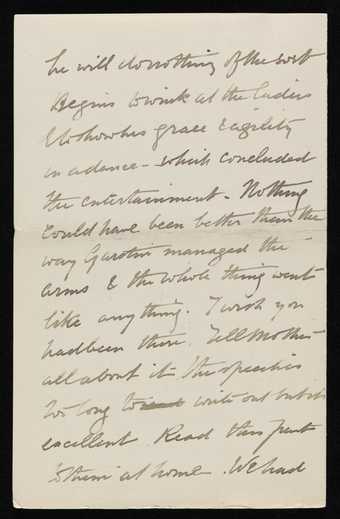 he will do nothing of the sort
Begins to wink at the ladies
& to show his grace & agility
in a dance - which concluded
the entertainment - Nothing
could have been better than the
way managed the
arms & the whole thing went
like anything. I wish you
had been there. Tell Mother
all about it the speeches
too long to write out but
excellent. Read this part
to them at home. We had